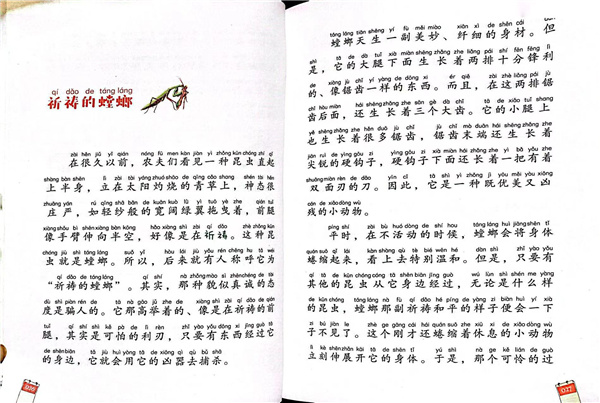 qí dǎo de táng láng
祈祷的螳螂
zài hěn jiǔ yǐ qián nóng fū men kàn jiàn yì zhǒng kūn chóng zhí qǐ
在很久以前，农夫们看见一种昆虫直起
shàng bàn shēn lì zài tài yáng zhuó shāo de qīng cǎo shang shén tài hěn
上半身，立在太阳灼烧的青草上，神态很
zhuāng yán rú qīng shā bān de kuān kuò lǜ yì tuō yè zhe qián tuǐ
庄严，如轻纱般的宽阔绿翼拖曳着，前腿
xiàng shǒu bì shēn xiàng bàn kōng hǎo xiàng shì zài qí dǎo zhè zhǒng kūn
像手臂伸向半空，好像是在祈祷。这种昆
chóng jiù shì táng láng suǒ yǐ hòu lái jiù yǒu rén chēng hū tā wéi
虫就是螳螂。所以，后来就有人称呼它为
qí dǎo de táng láng qí shí nà zhǒng mào sì zhēn chéng de tài
“祈祷的螳螂”。其实，那种貌似真诚的态
dù shì piàn rén de tā nà gāo jǔ zhe de xiàng shì zài qí dǎo de qián
度是骗人的。它那高举着的、像是在祈祷的前
tuǐ qí shí shì kě pà de lì rèn zhǐ yào yǒu dōng xi jīng guò tā
腿，其实是可怕的利刃，只要有东西经过它
de shēn biān tā jiù huì yòng tā de xiōng qì qù bǔ shā
的身边，它就会用它的凶器去捕杀。
táng láng tiān shēng yí fù měi miào xiān xì de shēn cái dàn
螳螂天生一副美妙、纤细的身材。但
shì tā de dà tuǐ xià miàn shēng zhǎng zhe liǎng pái shí fēn fēng lì
是，它的大腿下面生长着两排十分锋利
de xiàng jù chǐ yí yàng de dōng xi ér qiě zài zhè liǎng pái jù
的、像锯齿一样的东西。而且，在这两排锯
chǐ hòu miàn hái shēng zhǎng zhe sān gè dà chǐ tā de xiǎo tuǐ shàng
齿后面，还生长着三个大齿。它的小腿上
yě shēng zhǎng zhe hěn duō jù chǐ jù chǐ mò duān hái shēng zhǎng zhe
也生长着很多锯齿，锯齿末端还生长着
jiān ruì de yìng gōu zi yìng gōu zi xià miàn hái zhǎng zhe yì bǎ yǒu zhe
尖锐的硬钩子，硬钩子下面还长着一把有着
shuāng miàn rèn de dāo yīn cǐ tā shì yì zhǒng jì yōu měi yòu xiōng
双面刃的刀。因此，它是一种既优美又凶
cán de xiǎo dòng wù
残的小动物。
píng shí zài bù huó dòng de shí hou táng láng huì jiāng shēn tǐ
平时，在不活动的时候，螳螂会将身体
quán suō qǐ lái kàn shàng qù tè bié wēn hé dàn shì zhǐ yào yǒu
蜷缩起来，看上去特别温和。但是，只要有
qí tā de kūn chóng cóng tā shēn biān jīng guò wú lùn shì shén me yàng
其他的昆虫从它身边经过，无论是什么样
de kūn chóng táng láng nà fù qí dǎo hé píng de yàng zi biàn huì yí xià
的昆虫，螳螂那副祈祷和平的样子便会一下
zi bú jiàn le zhè ge gāng cái hái quán suō zhe xiū xi de xiǎo dòng wù
子不见了。这个刚才还蜷缩着休息的小动物
lì kè shēn zhǎn kāi tā de shēn tǐ yú shì nà ge kě lián de guò
立刻伸展开它的身体。于是，那个可怜的过